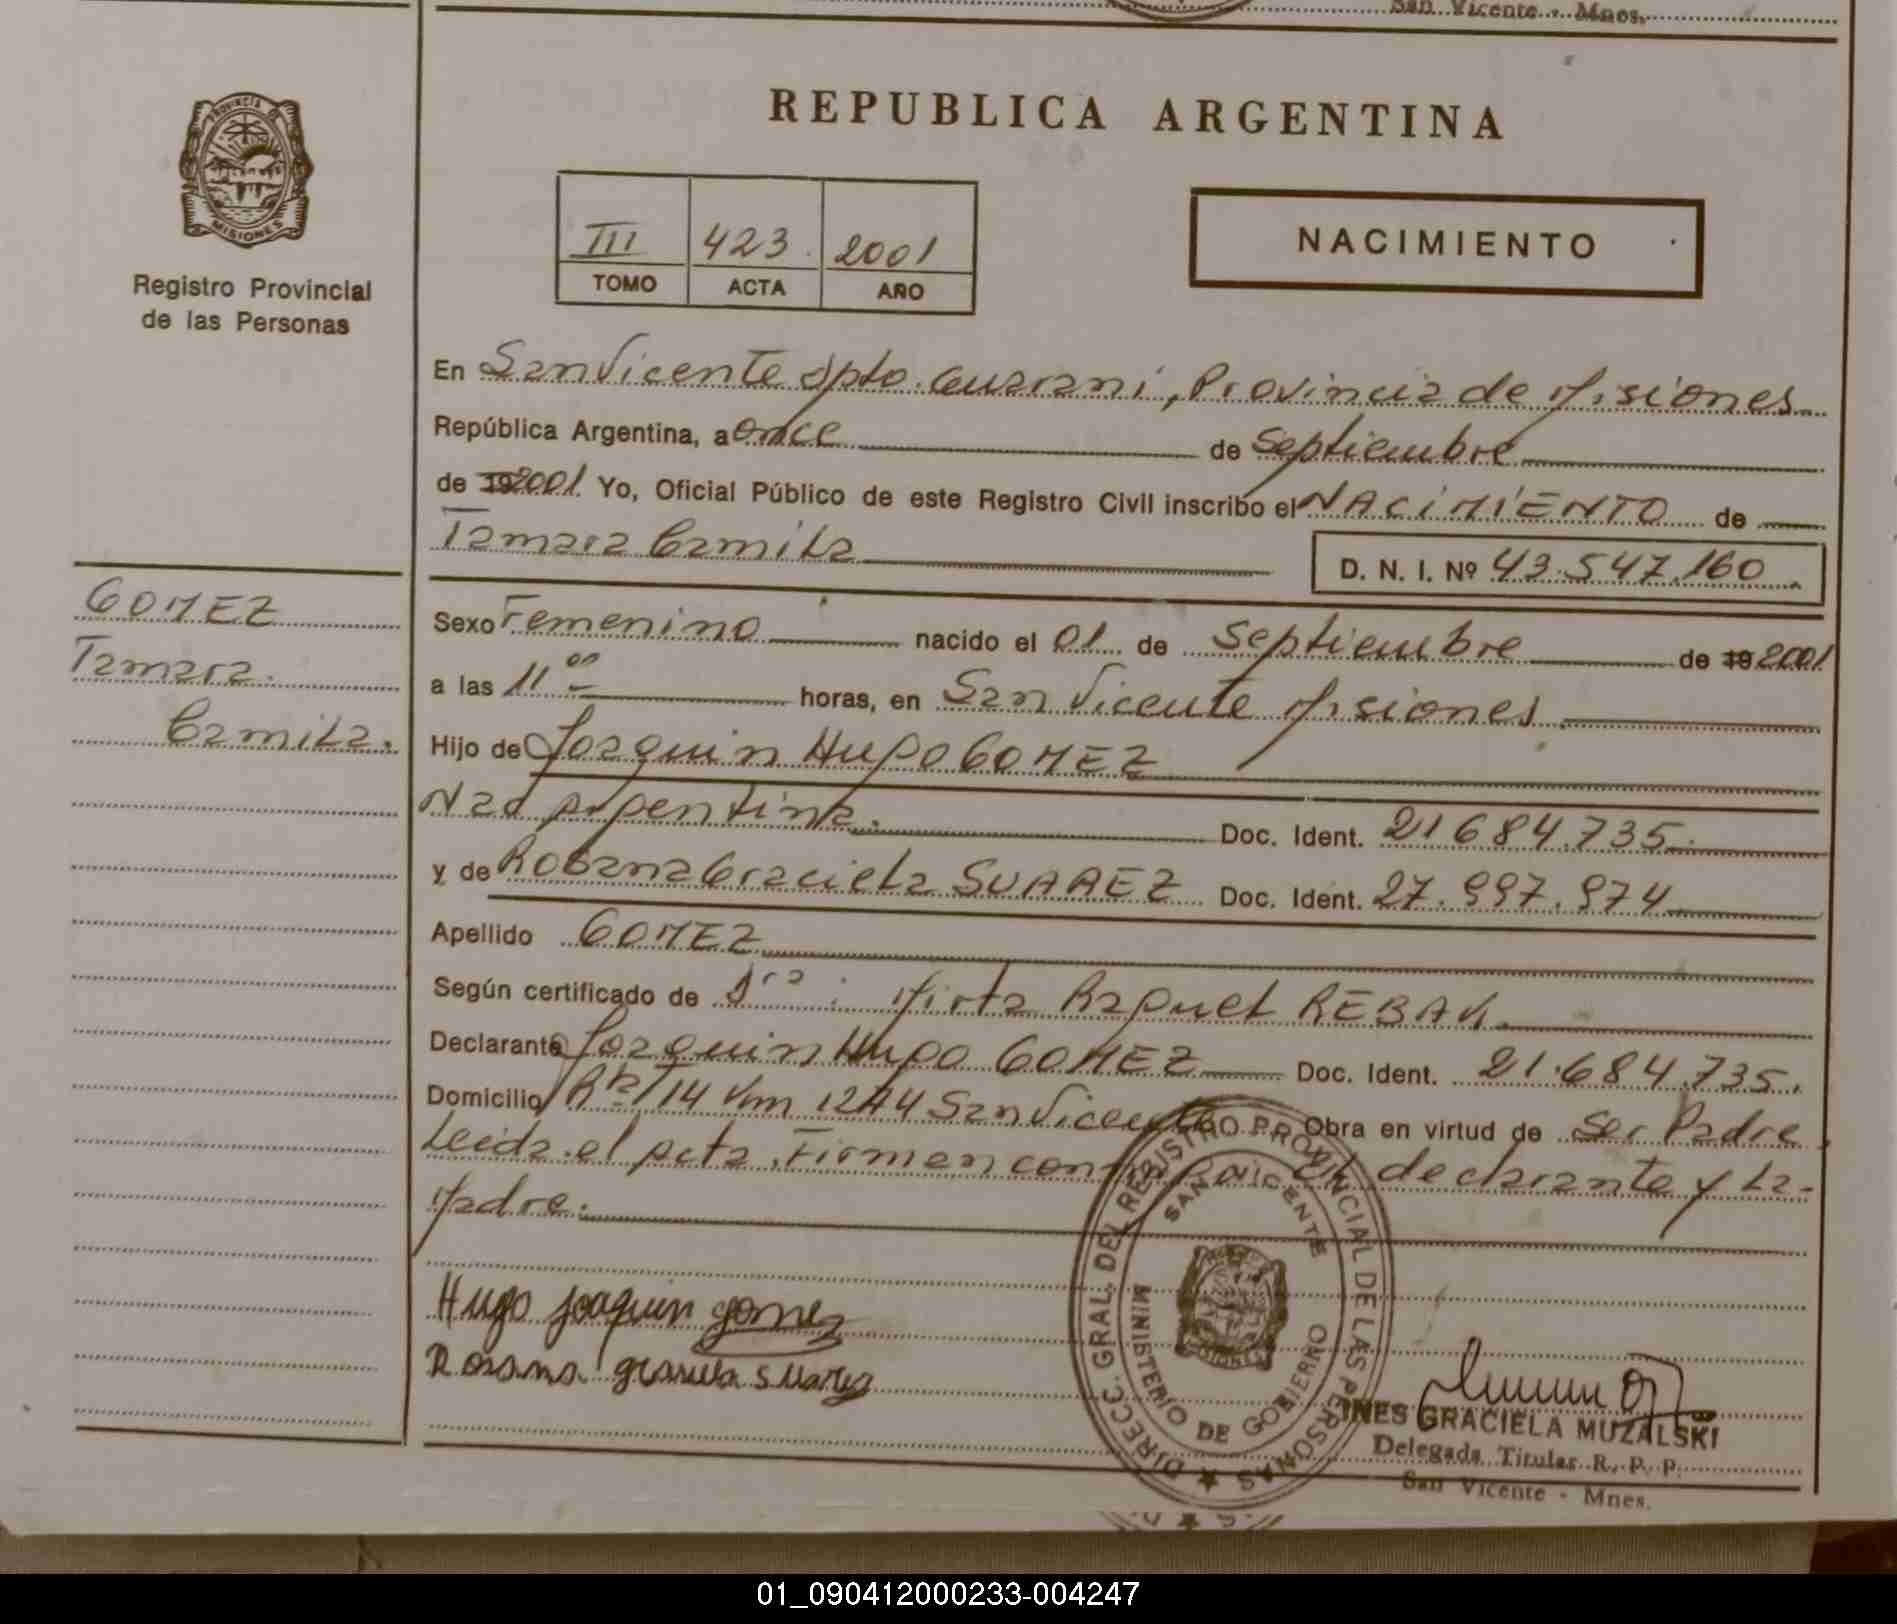 San Vicente - Mnes.
REPUBLICA ARGENTINA
PROVINCIA DE
MISIONES
Registro Provincial
de las Personas
III 423 2001
TOMO ACTA AÑO
NACIMIENTO
En San Vicente Dpto. Guarani, Provincia de Misiones
República Argentina, a once de Septiembre
de 19 2001. Yo, Oficial Público de este Registro Civil inscribo el NACIMIENTO de
Tamara Camila
D. N. I. Nº 43.547.160
GOMEZ
Tamara
Camila.
Sexo Femenino nacido el 01 de Septiembre de 19 2001
a las 11 00 horas, en San Vicente Misiones
Hijo de Joaquin Hugo GOMEZ
Nac Argentina. Doc. Ident. 21684.735
y de Rosana Graciela SUAREZ Doc. Ident. 27.997.974
Apellido GOMEZ
Según certificado de Dra: Mirta Raquel REBAK
Declarante Joaquin Hugo GOMEZ Doc. Ident. 21.684.735.
Domicilio Rta 14 Km 1244 San Vicente Obra en virtud de Ser Padre,
Leida el acta, Firmen conmigo el declarante y la
Madre.
Hugo Joaquin gomez
Rosana graciela suarez
DIRECC. GRAL. DEL REGISTRO PROVINCIAL DE LAS PERSONAS
SAN VICENTE
MINISTERIO DE GOBIERNO
INES GRACIELA MUZALSKI
Delegada Titular R. P. P.
San Vicente - Mnes.
01_090412000233-004247